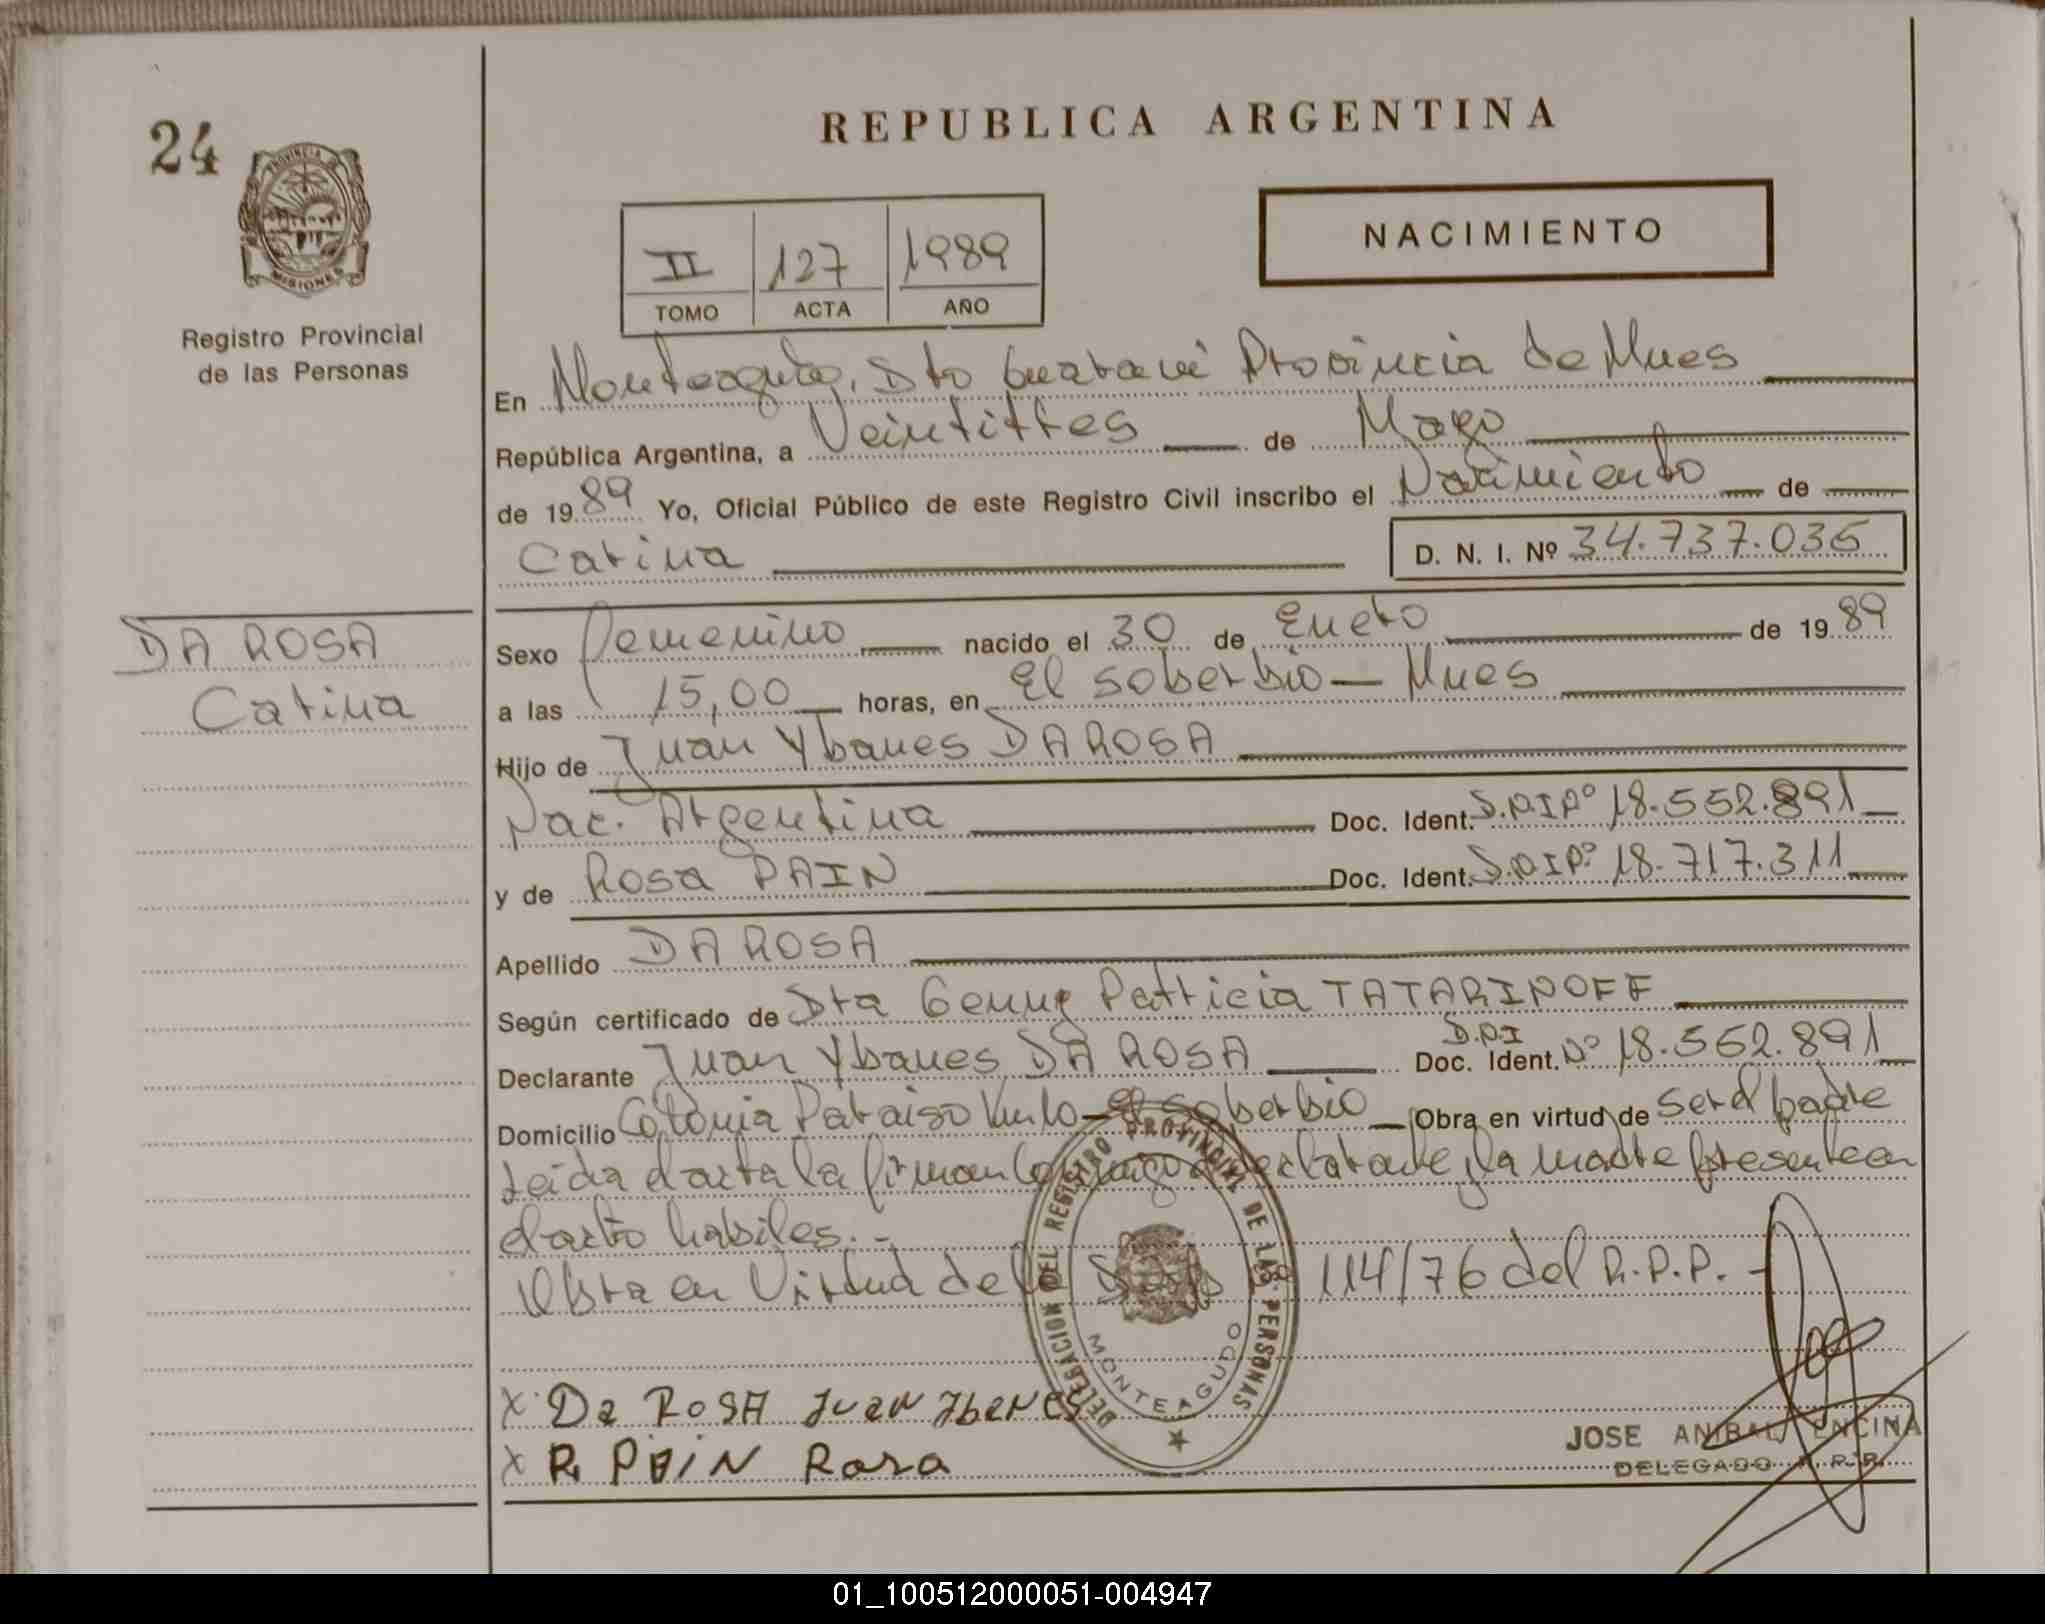 24
REPUBLICA ARGENTINA
PROVINCIA DE
MISIONES
NACIMIENTO
II 127 1989
TOMO ACTA AÑO
Registro Provincial
de las Personas
En Monteagudo, Dto Guaraní Provincia de Mnes
República Argentina, a Veintitres de Mayo
de 1989 Yo, Oficial Público de este Registro Civil inscribo el Nacimiento de
Carina D. N. I. Nº 34.737.036
DA ROSA
Carina
Sexo Femenino nacido el 30 de Enero de 1989
a las 15,00 horas, en El Soberbio - Mnes
Hijo de Juan Ybanes DA ROSA
Nac. Argentina Doc. Ident. D.N.I Nº 18.552.891
y de Rosa PAIN Doc. Ident. D.N.I Nº 18.717.311
Apellido DA ROSA
Según certificado de Dra Genny Patricia TATARINOFF
Declarante Juan Ybanes DA ROSA D.N.I Doc. Ident. Nº 18.552.891
Domicilio Colonia Paraiso - El Soberbio Obra en virtud de ser el padre
Leida el acta la firman conmigo declarante y la madre presente en
el acto habiles. -
Obra en Virtud de la 114/76 del R.P.P. -
DELEGACION DEL REGISTRO PROVINCIAL DE LAS PERSONAS
MONTEAGUDO
X Da ROSA Juan Ibanes
X R. PAIN Rosa
JOSE ANIBAL ENCINA
DELEGADO R.P.P.
01_100512000051-004947